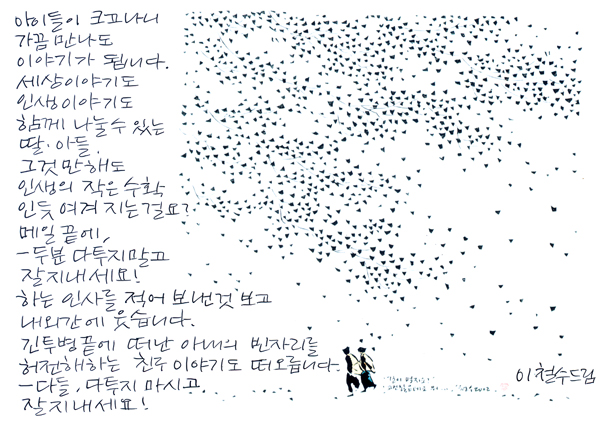 아이들이 크고나니
가끔 만나도
이야기가 됩니다.
세상이야기도
인생이야기도
함께 나눌수 있는
딸·아들.
그것만해도
인생의 작은 수확
인듯 여겨 지는걸요?
메일 끝에,
-두분 다투지말고
잘지내세요!
하는 인사를 적어 보낸것 보고
내외간에 웃습니다.
긴투병끝에 떠난 아내의 빈자리를
허전해하는 친구 이야기도 떠오릅니다.
-다들, 다투지 마시고,
잘지내세요!
이철수드림